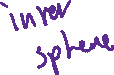 inner
sphere